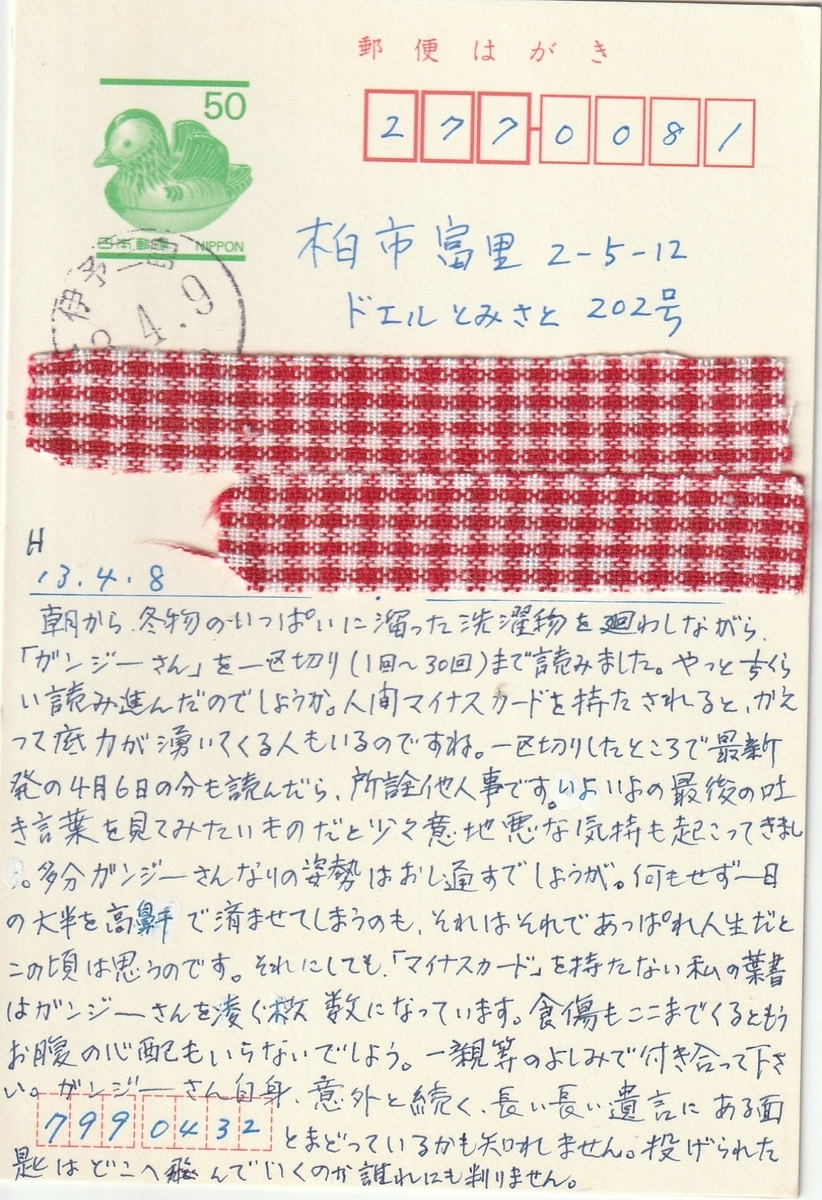 郵便はがき
50
日本郵便 NIPPON
伊予三島
4.9
277-0081
柏市富里 2-5-12
ドエルとみさと 202号
H
13.4.8
朝から、冬物のいっぱいに溜った洗濯物を廻わしながら、
「ガンジーさん」を一区切り(1回〜30回)まで読みました。やっと古くら
い読み進んだのでしょうか。人間マイナスカードを持たされると、かえ
って底力が湧いてくる人もいるのですね。一区切りしたところで最新
発の4月6日の分も読んだら、所詮他人事です。いよいよの最後の吐
き言葉を見てみたいものだと少々意地悪な気持も起こってきまし
。多分ガンジーさんなりの姿勢はおし通すでしょうが。何もせず一日
の大半を高鼾で済ませてしまうのも、それはそれであっぱれ人生だと
この頃は思うのです。それにしても、「マイナスカード」を持たない私の葉書
はガンジーさんを凌ぐ枚数になっています。食傷もここまでくるともう
お腹の心配もいらないでしょう。一親等のよしみで付き合って下さ
い。ガンジーさん自身、意外と続く、長い長い遺言にある面
とまどっているかも知れません。投げられた
匙はどこへ飛んでいくのか誰れにも判りません。
7990432